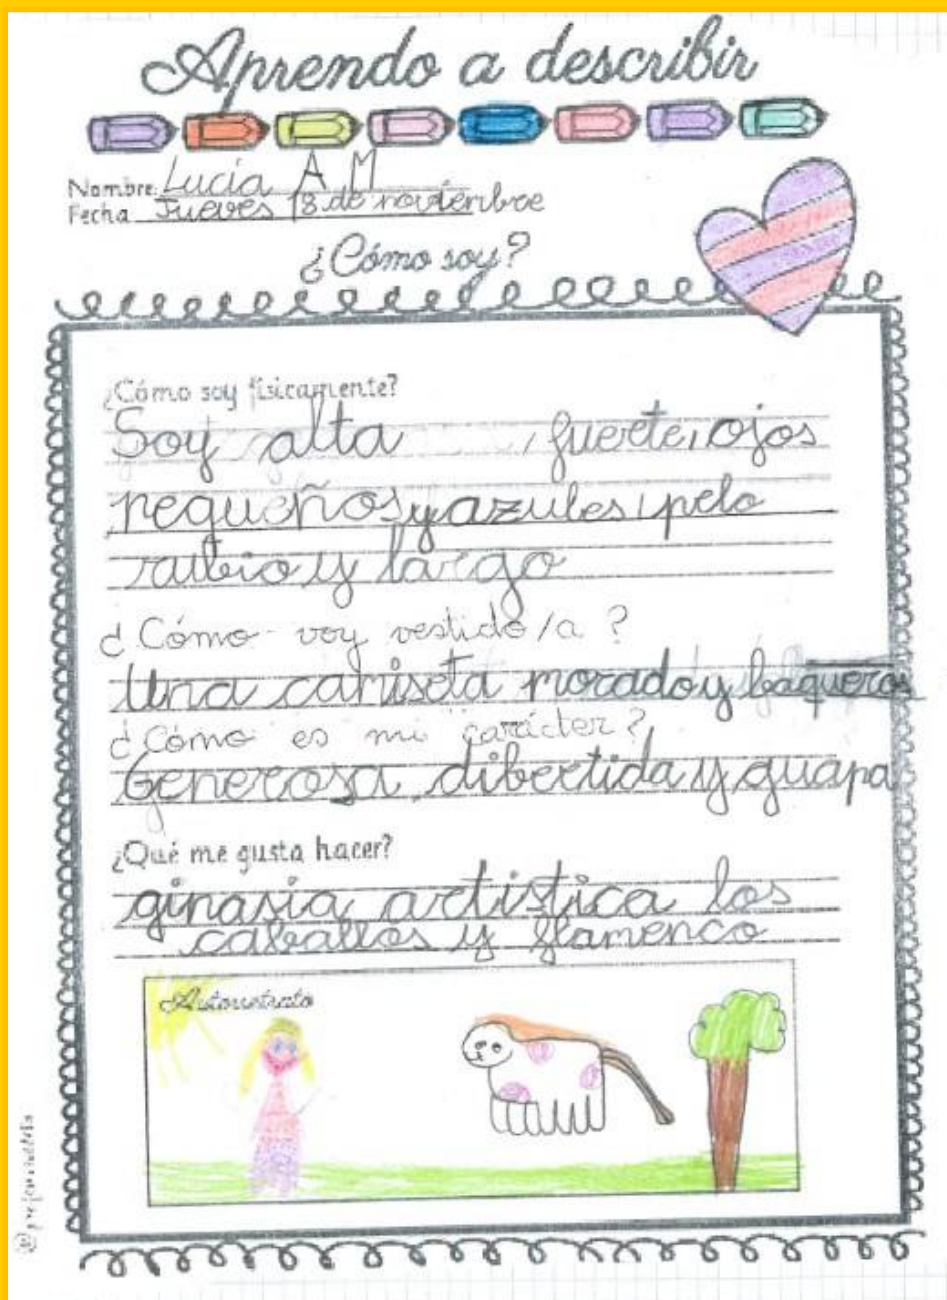 Aprendo a describir
Nombre: Lucía A M
Fecha Jueves 18 de noviembre
¿Cómo soy?
¿Cómo soy físicamente?
Soy alta, fuerte, ojos
pequeños y azules, pelo
rubio y largo
¿Cómo voy vestido/a?
Una camiseta morado y baqueros
¿Cómo es mi carácter?
Generosa, dibertida y guapa
¿Qué me gusta hacer?
ginasia artistica los
caballos y flamenco
Autorretrato